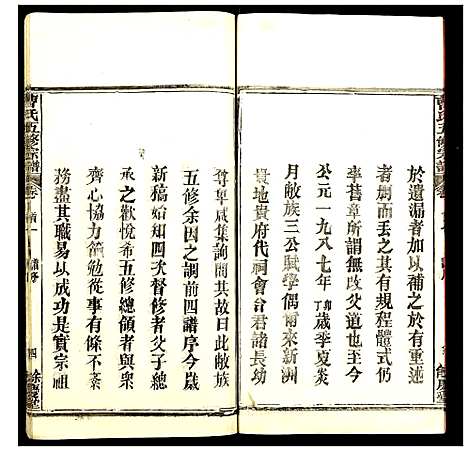 於遺漏者加以補之於有重述
者刪而丟之其有規程體式仍
率舊章所謂無改父道也至于
公元一九八七年丁卯歲季夏炎
月敝族三公賦學偶爾來新洲
長地貴府代祠會台君諸長幼
尊卑咸集詢問其故曰此敝族
五修余因之調前四譜序今歲
新稿始知四次督修者父子總
承之歡悅希五修總領者與
齊心協力勤勉從事有條不紊
務盡其職易以成功是實宗祖
曹氏五修宗譜
卷首一
譜序
四
餘慶堂
曹氏五修宗譜
餘慶堂